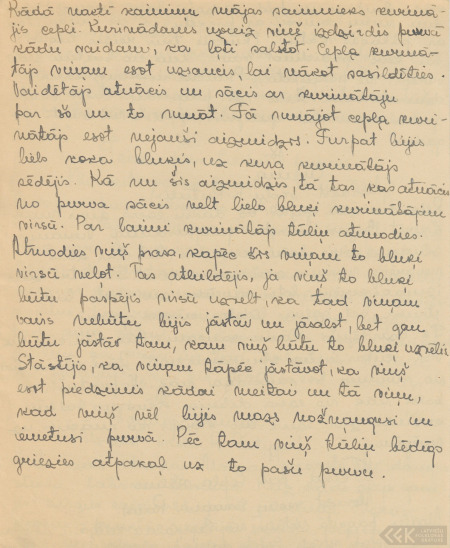 Kādā naktī kaimiņu mājas saimnieks kurinā-
jis cepli. Kurinādams uzreiz viņš izdzirdis purvā
kādu vaidam, ka ļoti salstot. Cepļa kurinā-
tājs viņam esot uzsaucis, lai nākot sasildīties.
Vaidētājs atnācis un sācis ar kurinātāju
par šo un to runāt. Tā runājot cepļa kuri-
nātājs esot nejauši aizmidzis. Turpat bijis
liels koka bluķis, uz kura kurinātājs
sēdējis. Kā nu šis aizmidzis, tā tas, kas atnācis
no purva sācis velt lielo bluķi kurinātājam
virsū. Par laimi kurinātājs tūliņ atmodies.
Atmodies viņš prasa, kāpēc šis viņam to bluķi
virsū veļot. Tas atbildējis, ja viņš to bluķi
būtu paspējis virsū uzvelt, ka tad viņam
vairs nebūtu bijis jāstāv un jāsalst, bet gan
būtu jāstāv tam, kam viņš būtu to bluķi uzvēlis.
Stāstījis, ka viņam tāpēc jāstāvot, ka viņš
esot piedzimis kādai meitai un tā viņu,
kad viņš vēl bijis mazs nožņaugusi un
iemetusi purvā. Pēc tam viņš tūliņ bēdīgs
griezies atpakaļ uz to pašu purvu.
LFK